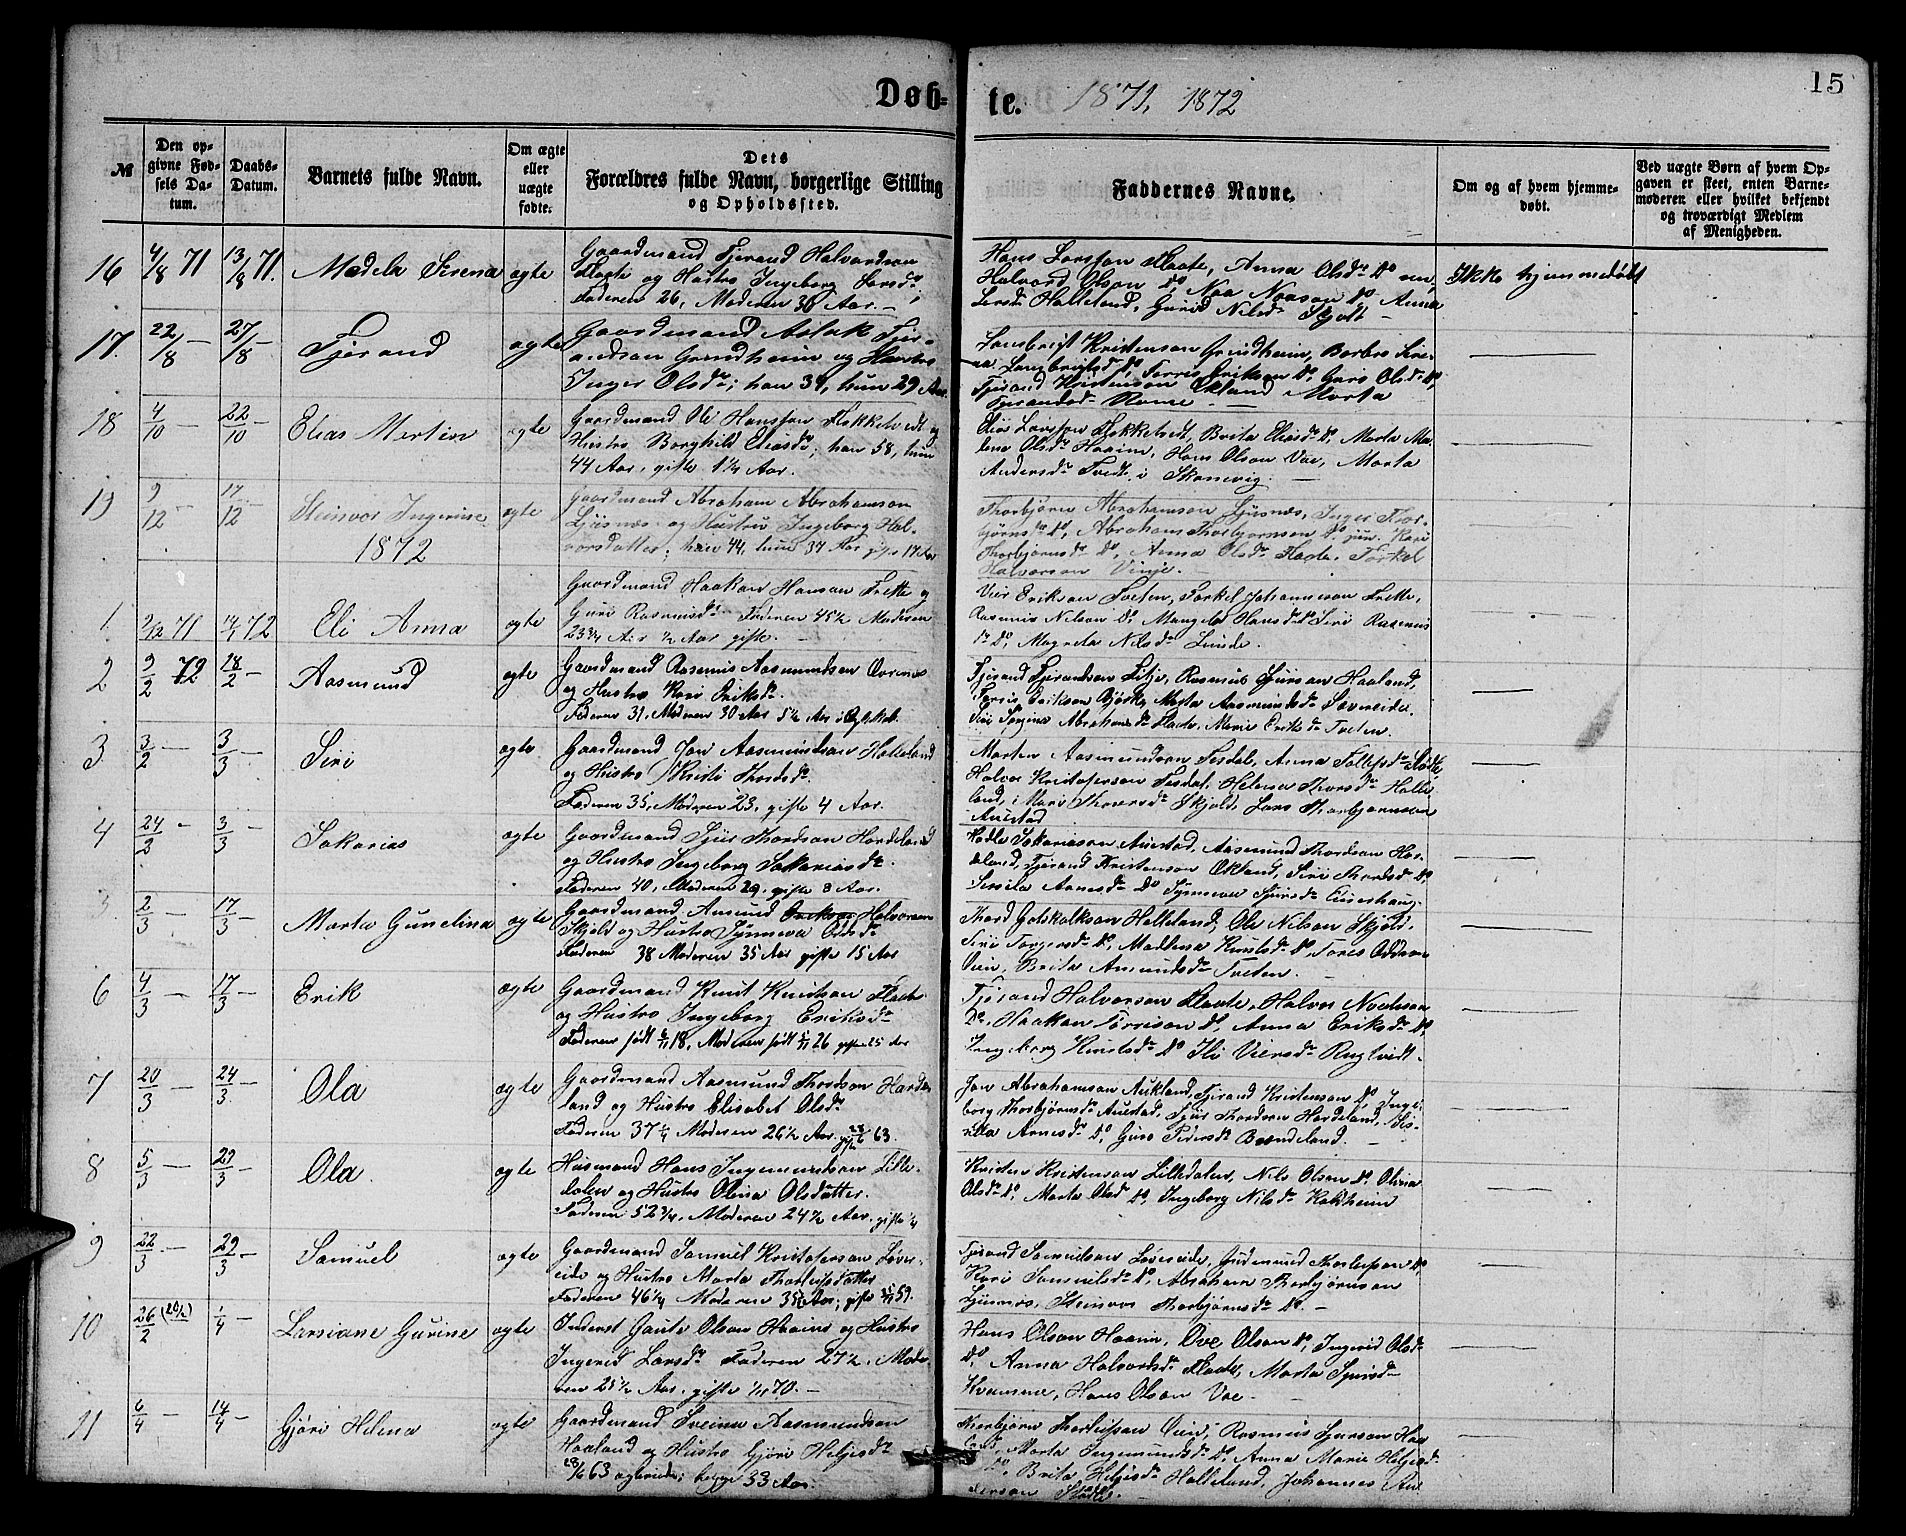 15
Døb-te. 1871, 1872
№
Den opgivne Fødsels Datum.
Daabs-Datum.
Barnets fulde Navn.
Om ægte eller uægte fødte.
Dets Forældres fulde Navn, borgerlige Stilling og Opholdssted.
Faddernes Navne.
Om og af hvem hjemmedøbt.
Ved uægte Børn af hvem Opgaven er skeet, enten Barnemoderen eller hvilket bekjendt og troværdigt Medlem af Menigheden.
16 4/8 71 13/8 71. Madela Serena ægte
Gaardmand Tjerand Halvardson
Flaate og Hustro Ingeborg Larsdr
Faderen 26, Moderen 30 Aar. —
Hans Larsson Flaate, Anna Olsdr Do
Halvord Olson Do, Naa Naason Do Anna
Larsdr Halleland, Gurid Nilsdr Skjolt —
Ikke hjemmedøbt
17. 22/8 — 27/8 — Tjerand ægte
Gaardmand Aslak Tjer-
andson Grindheim og Hustro
Inger Olsdr; han 39, hun 29 Aar.
Langbrigt Kristenson Grindheim, Barbro Sire-
na Langbrigtsdr Do, Torris Erikson Do, Guro Olsdr Do,
Tjerand Kristenson Økland, Marta
Tjerandsdr Rame. —
18 4/10 — 22/10 — Elias Martin ægte
Gaardmand Ole Hansson Flokketvedt og
Hustro Borghild Eliasdr; han 58, hun
44 Aar, gifte 1 1/4 Aar.
Elias Larsson Flokketvedt, Brita Eliasdr Do, Marta Ma-
lene Olsdr Haaim, Hans Olson Vae, Marta
Andersdr Tvedt i Skonevig. —
19 9/12 — 17/12 — Steinvor Ingerine ægte
Gaardmand Abraham Abrahamson
Ljusnes og Hustru Ingeborg Hal-
vorsdatter; han 44, hun 37 Aar gifte 17 Aar
Thorbjørn Abrahamson Ljusnes, Inger Thor-
bjørnsdr Do, Abraham Thorbjornson Do jun. Kari
Thorbjørnsdr Do, Anna Olsdr Flaate, Torkel
Halvorson Vinje. —
1872
1. 9/12 71 14/1 72 Eli Anna ægte
Gaardmand Haakon Hanson Frette og
Guri Rasmusdr Faderen 45 1/2 Moderen
23 3/4 Aar 1/2 Aar gifte. —
Vier Erikson Tveten, Torkel Johannesson Frette,
Rasmus Nilson Do, Mangela Hansdr Do Siri Rasmus
dr Do, Magreta Nilsdr Lunde.
2 9/2 72 18/2 — Aasmund ægte
Gaardmand Rasmus Aasmundson Overnes
og Hustro Kari Eriksdr
Faderen 31, Moderen 30 Aar 5 1/2 Aar i Ægtskab.
Tjerand Tjerandson Litje, Rasmus Sjurson Haaland,
Torris Erikson Bjørke, Marta Aasmundsdr Søvereide.
Siri Torgina Abrahamsdr Flaate, Marie Eriksdr Tveten.
3 3/2 — 3/3 — Siri ægte
Gaardmand Jon Aasmundson Halleland
og Hustro Kristi Thordsdr
Faderen 35, Moderen 23, gifte 4 Aar.
Morten Aasmundson Tesdal, Anna Tollefsdr Stødle
Halvor Kristoferson Tesdal, Helena Thorsdr Halle
land, Mari Thorersdr Skjold, Lars Thorbjørnson
Austad
4 24/2 — 3/3 — Sakarias ægte
Gaardmand Sjur Thordson Hordeland
og Hustro Ingeborg Sakariasdr
Faderen 40, Moderen 29, gifte 8 Aar.
Hadle Sakariasson Austad, Aasmund Thordson Hor-
deland, Tjerand Kristenson Økland, Siri Thordsdr Do,
Sersila Arnesdr Do Synneva Sjursdr Eiserhaug.
5 2/3 — 17/3 — Marta Gunelina ægte
Gaardmand Amund Halvorson
Skjold og Hustro Synneva Oddsdr
Faderen 38 Moderen 35 Aar gifte 15 Aar
Thord Gotskalkson Halleland, Ole Nilson Skjold,
Siri Torgersdr Do, Madlena Knutsdr Do Tores Oddson
Øien, Brita Amundsdr Tveten. —
6 4/3 — 17/3 — Erik ægte
Gaardmand Knut Knutson Flaate
og Hustro Ingeborg Eriksdr
Faderen født 6/11 18, Moderen født 5/11 26 gifte 25 Aar
Tjerand Halvorson Flaate, Halvor
Do, Haakon Torrison Do, Anna Eriksdr Do
Ingeborg Knutsdr Do Ili Viersdr Rugtvedt.
7 20/3 — 24/3 — Ola ægte
Gaardmand Aasmund Thordson Horde-
land og Hustro Elisabet Olsdr
Faderen 37 1/4 Moderen 26 1/2 Aar, gifte 63.
Jon Abrahamson Aukland, Tjerand Kristenson Do, Inge-
borg Thorbjørnsdr Austad, Sjur Thordson Hordeland, Ses-
silla Arnesdr Do, Guro Pedersdr Bændeland. —
8 5/3 — 29/3 — Ola. ægte
Husmand Hans Ingemundson Lille-
dalen og Hustro Olina Olsdatter.
Faderen 52 3/4, Moderen 24 1/2 Aar. gifte 1/4
Kristen Kristenson Lilledalen, Nils Olson Do, Olina
Olsdr Do, Marta Olsdr Do, Ingeborg Nilsdr Kaldheim
9 22/3 — 29/3 — Samuel ægte
Gaardmand Samuel Kristoferson Løver-
eide og Hustro Marta Thorleifsdatter
Faderen 46 1/4 Moderen 35 1/2 Aar; gifte 59.
Tjerand Samuelson Løvereide, Gudmund Thorleifson Do,
Kari Samuelsdr Do, Abraham Thorbjørnson
Ljusnes, Steinvor Thorbjørnsdr Do. —
10 26/2 (20/2) 1/4 — Larsiane Gurine ægte
Inderst Gaute Olson Haaim og Hustro
Ingerid Larsdr Faderen 27 1/2, Mode-
ren 25 1/2 Aar, gifte 1/11 70. —
Hans Olson Haaim, Ove Olson Do, Ingerid Olsdr
Do, Anna Halvorsdr Flaate, Marta Sjursdr
Kvamme, Hans Olson Vae —
11 6/4 — 14/4 — Gjøri Helena ægte
Gaardmand Sveinu Aasmundson
Haaland og Hustro Gjøri Helgesdr
23/6 63 ægteviede; begge 33 Aar.
Thorbjørn Thorleifson Øien, Rasmus Sjurson Haa
land, Marta Ingemundsdr Do, Anna Marie Helgesd
Do, Brita Helgesdr Halleland, Johannes An-
derson Stødle. —